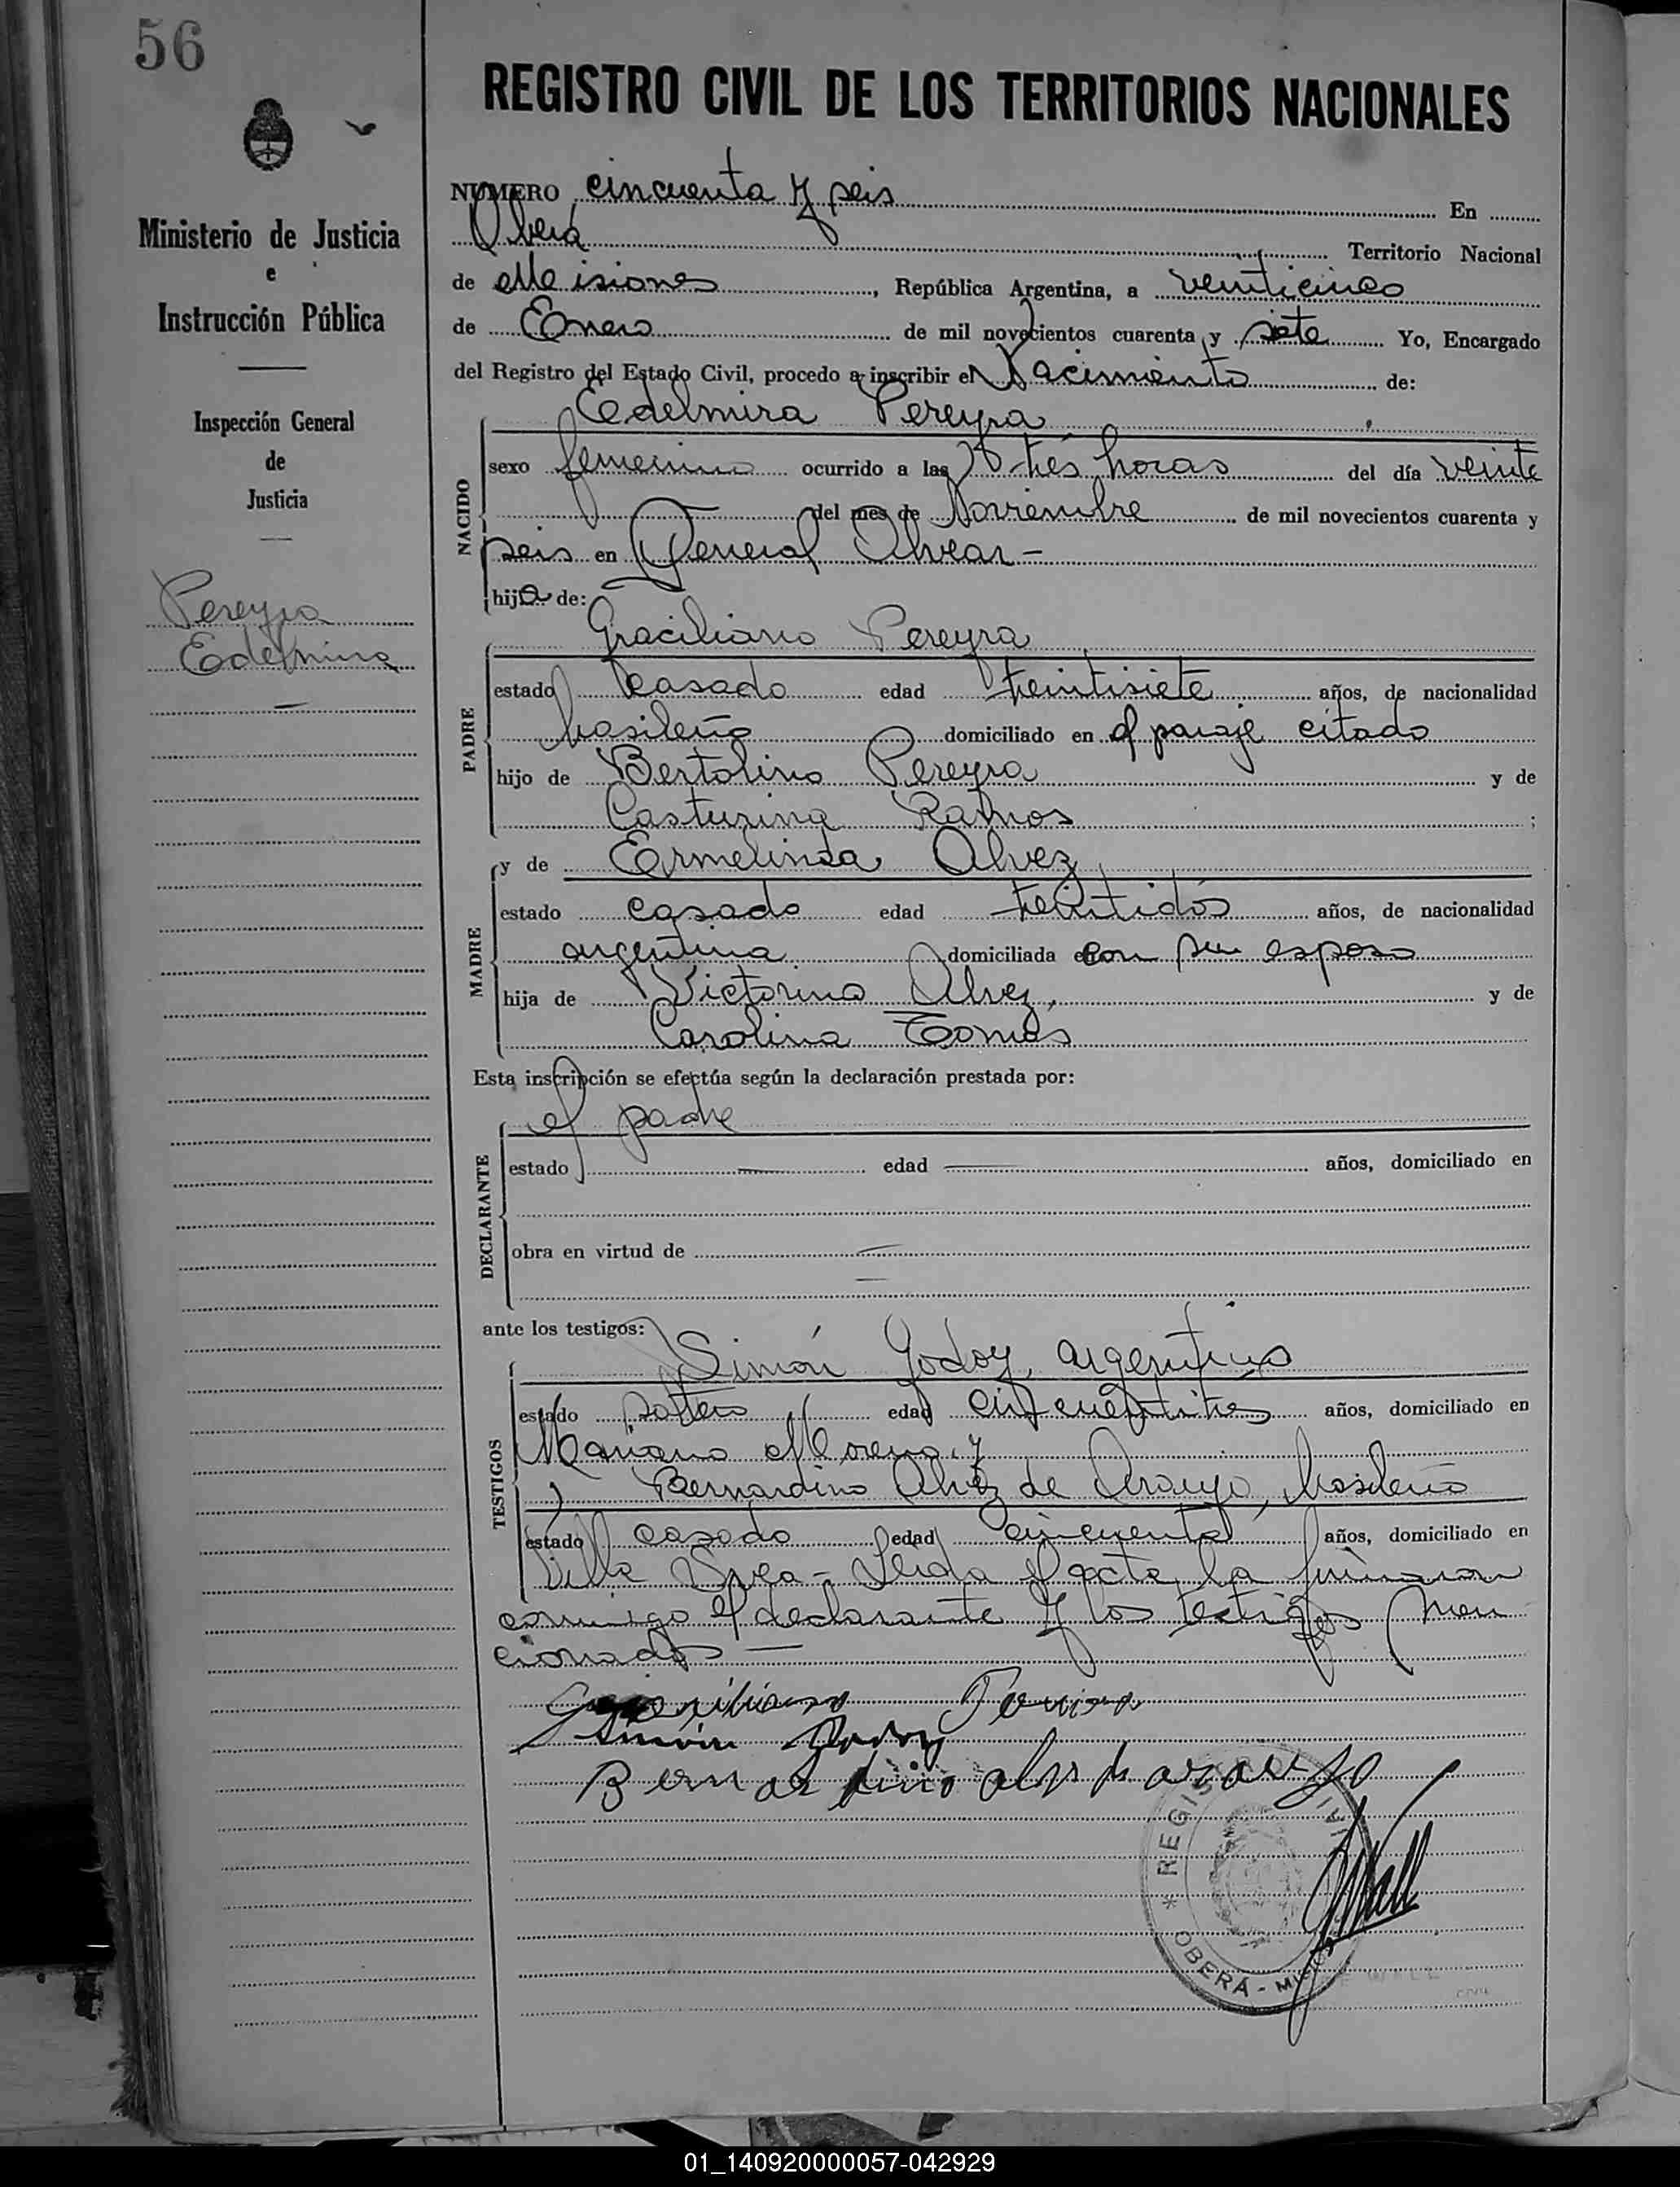 56
REGISTRO CIVIL DE LOS TERRITORIOS NACIONALES
Ministerio de Justicia
e
Instrucción Pública
Inspección General
de
Justicia
Pereyra
Edelmira
NUMERO cincuenta y seis En
Oberá Territorio Nacional
de Misiones, República Argentina, a veinticinco
de Enero de mil novecientos cuarenta y siete Yo, Encargado
del Registro del Estado Civil, procedo a inscribir el Nacimiento de:
NACIDO
Edelmira Pereyra
sexo femenino ocurrido a las tres horas del día veinte
del mes de Noviembre de mil novecientos cuarenta y
seis en General Alvear -
hija de:
PADRE
Graciliano Pereyra
estado casado edad treintisiete años, de nacionalidad
brasileño domiciliado en el paraje citado
hijo de Bertolino Pereyra y de
Casturina Ramos ;
MADRE
y de Ermelinda Alvez
estado casado edad treintidós años, de nacionalidad
argentina domiciliada en con su esposo
hija de Victorino Alvez, y de
Carolina Gomes
Esta inscripción se efectúa según la declaración prestada por:
DECLARANTE
el padre
estado — edad — años, domiciliado en
obra en virtud de —
—
ante los testigos:
TESTIGOS
Simón Godoy, argentino
estado soltero edad cincuentitrés años, domiciliado en
Mariano Moreno, y
Bernardino Alvez de Araujo, brasileño
estado casado edad cincuenta años, domiciliado en
Villa Svea - Leida el acta, la firmaron
conmigo el declarante y los testigos men
cionados —
Graciliano Pereira
Simón Godoy
Bernardino alves de araujo
* REGISTRO CIVIL
OBERÁ - MISIONES
01_140920000057-042929